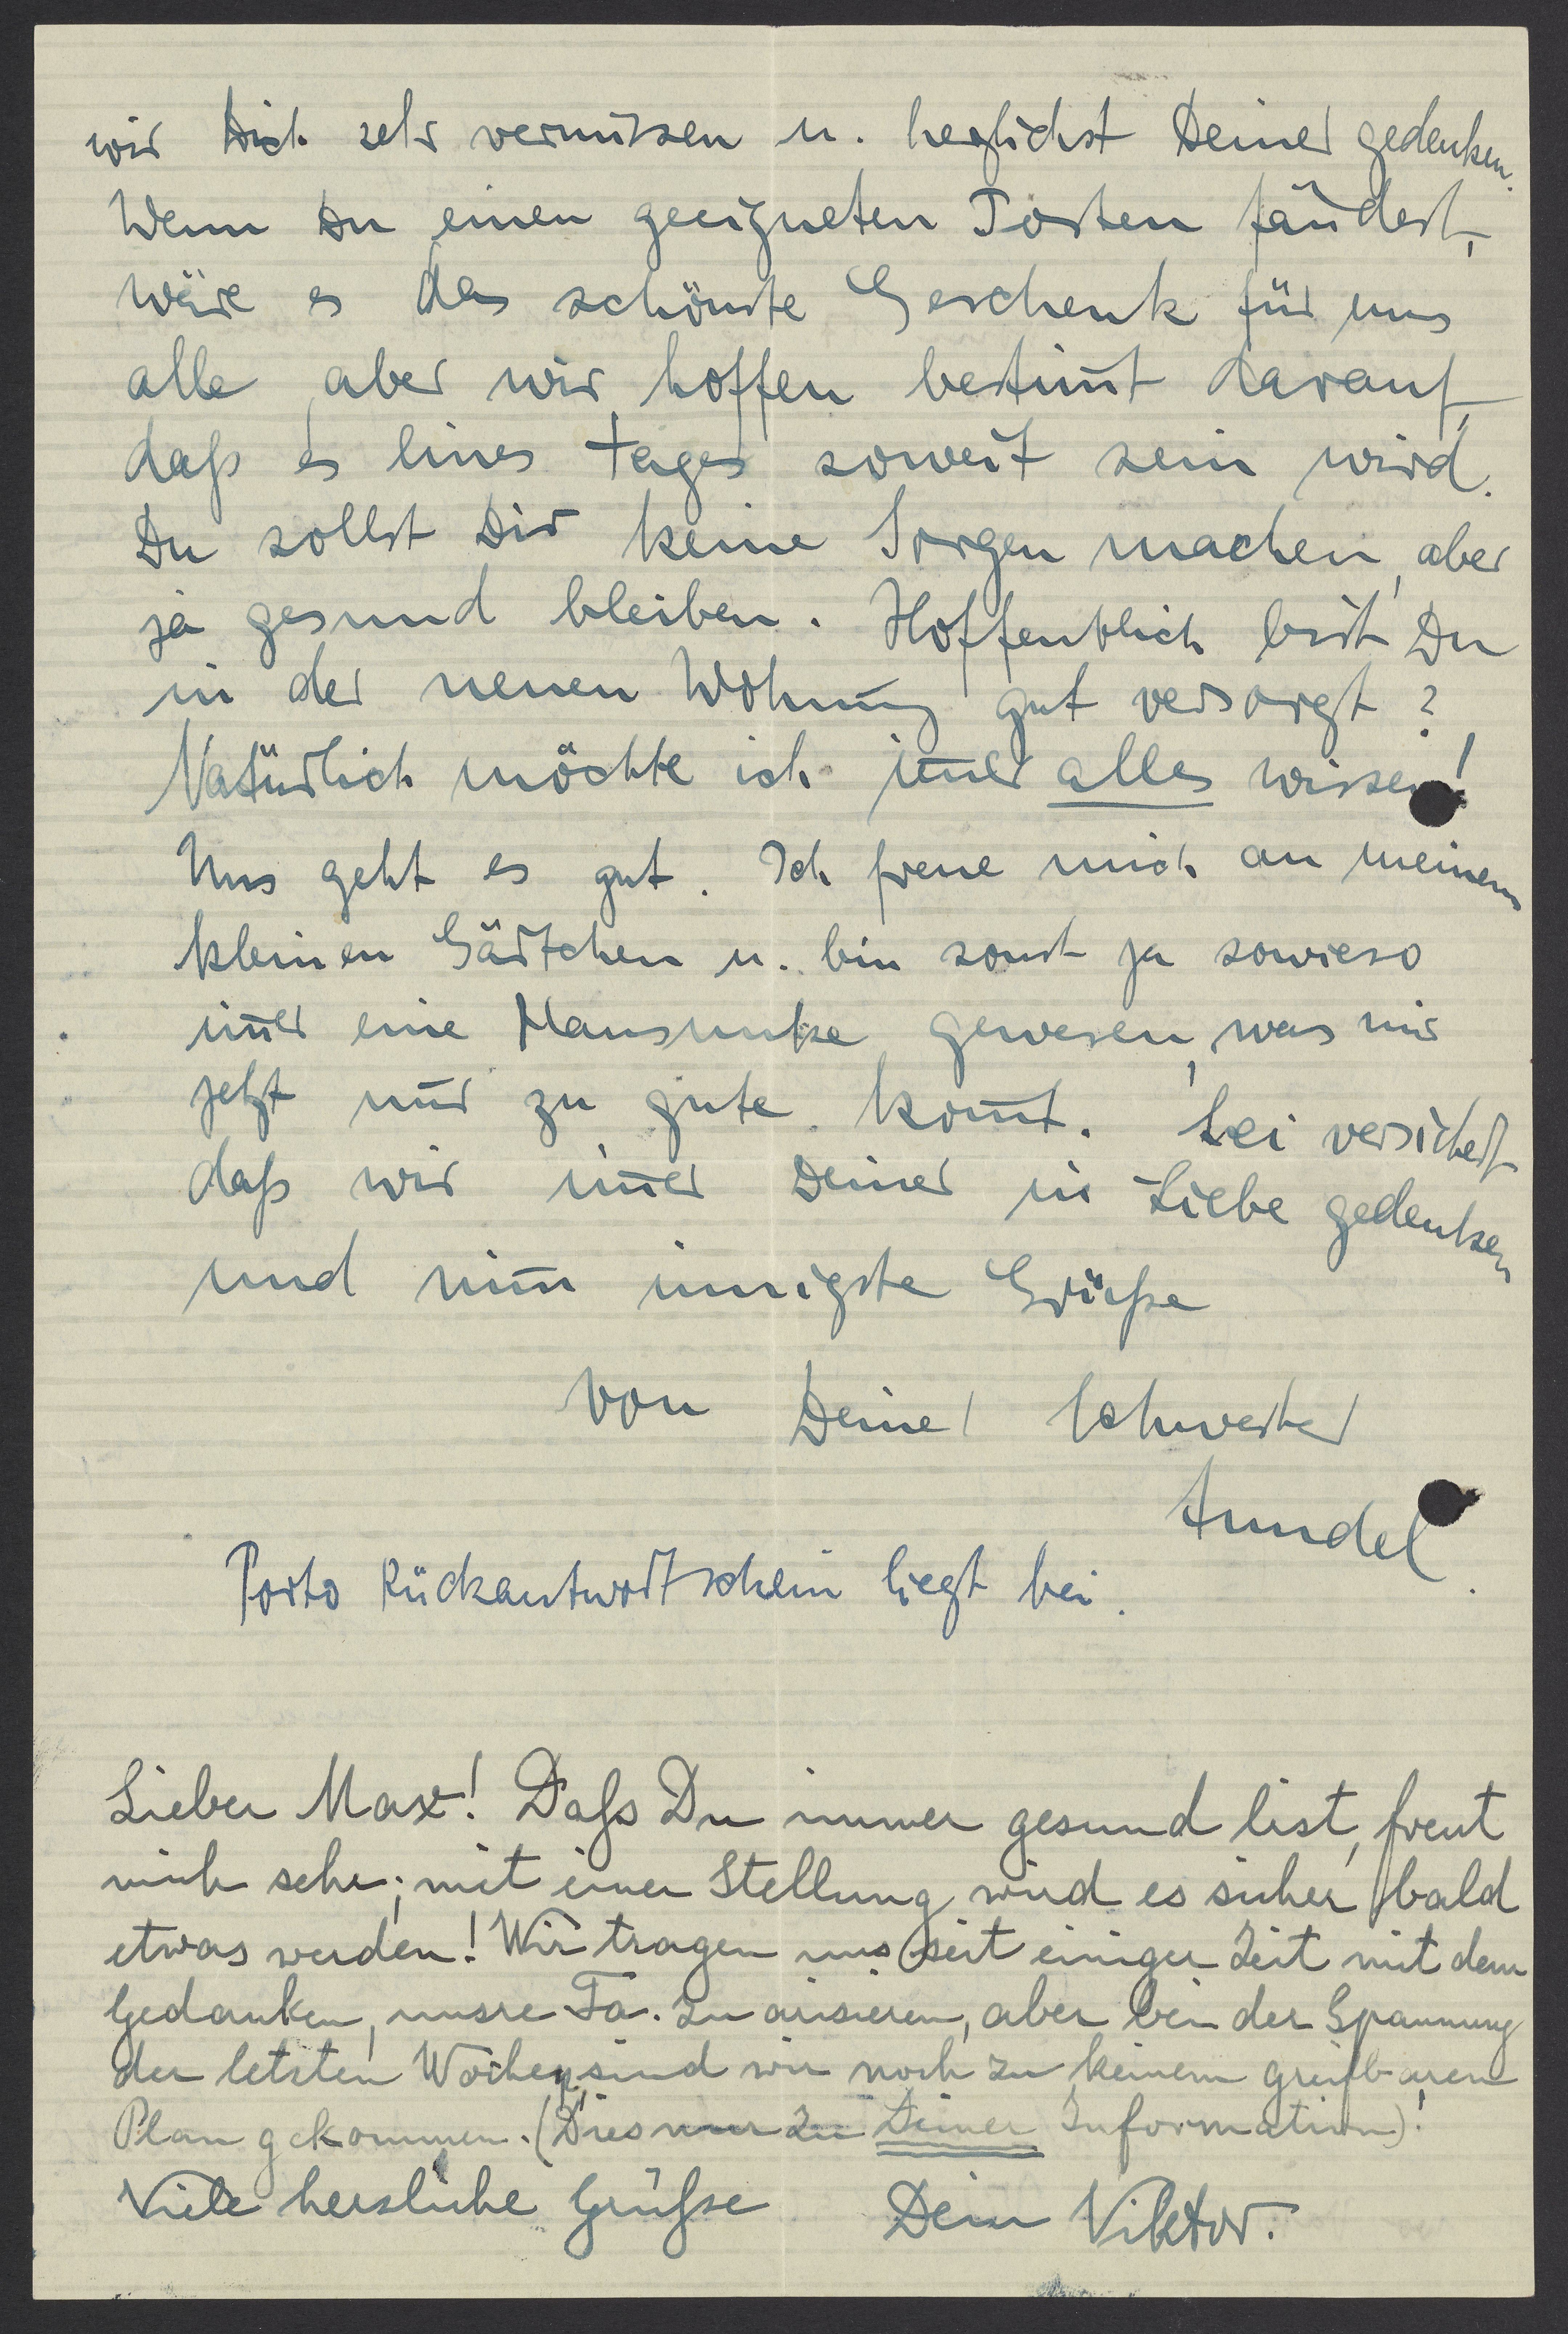 wir Dich sehr vermissen u. herzlichst Deiner gedenken.
Wenn Du einen geeigneten Posten fändest,
wäre es das schönste Geschenk für uns
alle, aber wir hoffen bestim̄t darauf,
daß es eines Tages soweit sein wird.
Du sollst Dir keine Sorgen machen, aber
ja gesund bleiben. Hoffentlich bist Du
in der neuen Wohnung gut versorgt?
Natürlich möchte ich im̄er alles wissen!
Uns geht es gut. Ich freue mich an meinem
kleinen Gärtchen u. bin sonst ja sowieso
im̄er eine Hausunke gewesen, was mir
jetzt nur zu gute kom̄t. Sei versichert
daß wir im̄er Deiner in Liebe gedenken
und nim̄ innigste Grüße
von Deiner Schwester
Porto Rückantwortschein liegt bei.
Lieber Max! Daß Du immer gesund bist, freut
mich sehr; mit einer Stellung wird es sicher bald
etwas werden! Wir tragen uns seit einiger Zeit mit dem
Gedanken, unsre Fa. zu arisieren, aber bei der Spannung
der letzten Wochen sind wir noch zu keinem greifbaren
Plan gekommen. (Dies nur zu Deiner Information)!
Viele herzliche Grüße Dein Viktor.